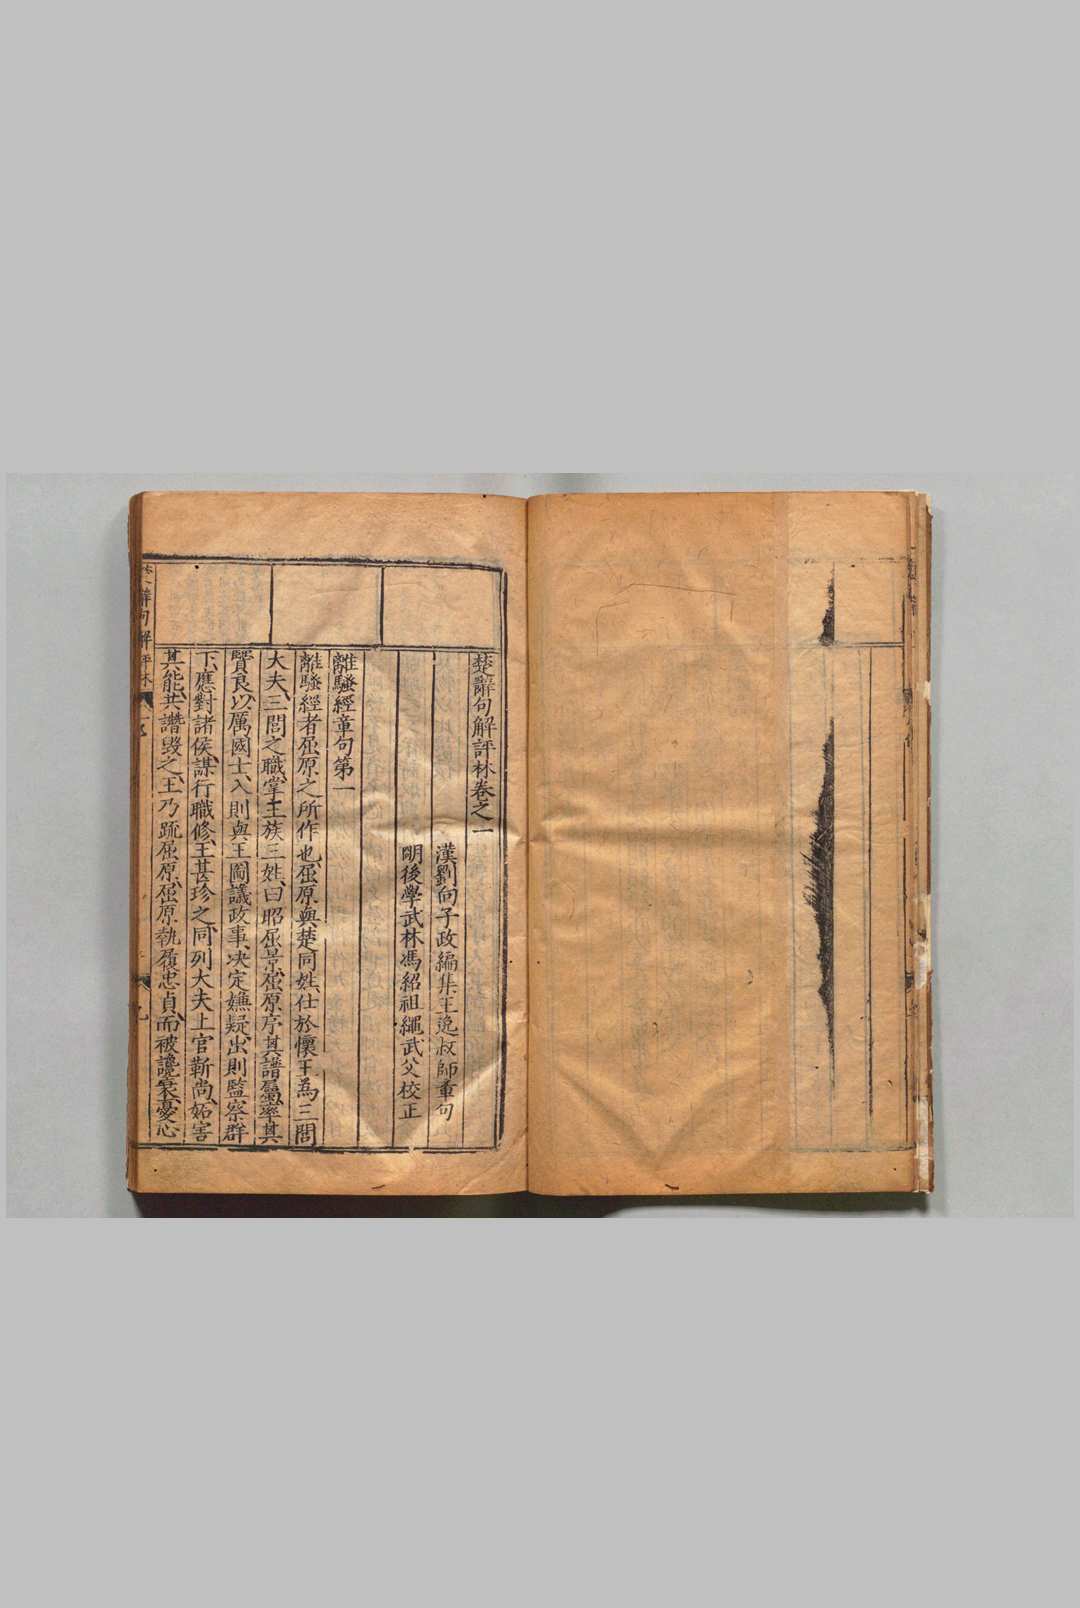 楚辭句解評林卷之一
漢劉向子政編集王逸叔師章句
明後學武林馮紹祖繩武父校正
離騷經章句第一
離騷經者屈原之所作也屈原與楚同姓仕於懷王為三閭
大夫三閭之職掌王族三姓曰昭屈景屈原序其譜屬率其
賢良以厲國士入則與王圖議政事决定嫌疑出則監察群
下應對諸侯謀行職修王甚珍之同列大夫上官靳尚妬害
其能共譖毀之王乃疏屈原屈原執履忠貞而被讒衺憂心
辭句解評林